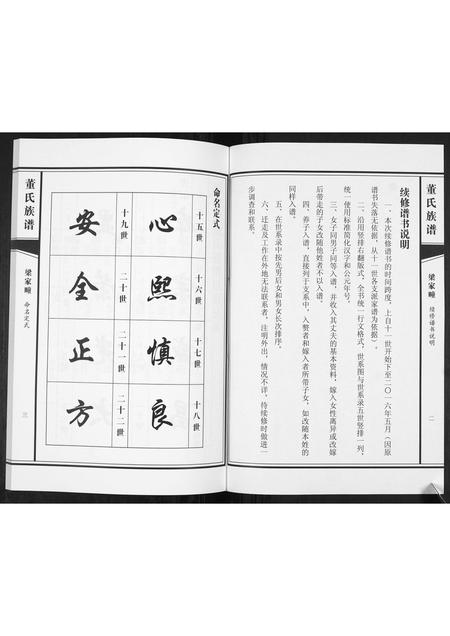 董氏族谱
梁家疃
续修谱书说明
二
续修谱书说明
一、本次续修谱书的时间跨度，上自十一世开始下至二〇一六年五月（因原
谱书失落无依据，从十一世各支派家谱为依据）。
二、沿用竖排右翻版式，全书统一行文格式，世系图与世系录五世竖排一列，
统一使用标准简化汉字和公元年号。
三、女子同男子同等入谱，并收入其丈夫的基本资料，嫁入女性离异或改嫁
后带走的子女改随他姓者不以入谱。
四、养子入谱，直接列于支系中，入赘者和嫁入者所带子女，如改随本姓的
同样入谱。
五、在世系录中按先男后女和男女长次排序。
六、迁走及工作在外地无法联系者，注明外出，情况不详，待续修时做进一
步调查和联系。
命名定式
十五世 十六世 十七世 十八世
心 熙 慎 良
十九世 二十世 二十一世 二十二世
安 全 正 方
董氏族谱
梁家疃
命名定式
三